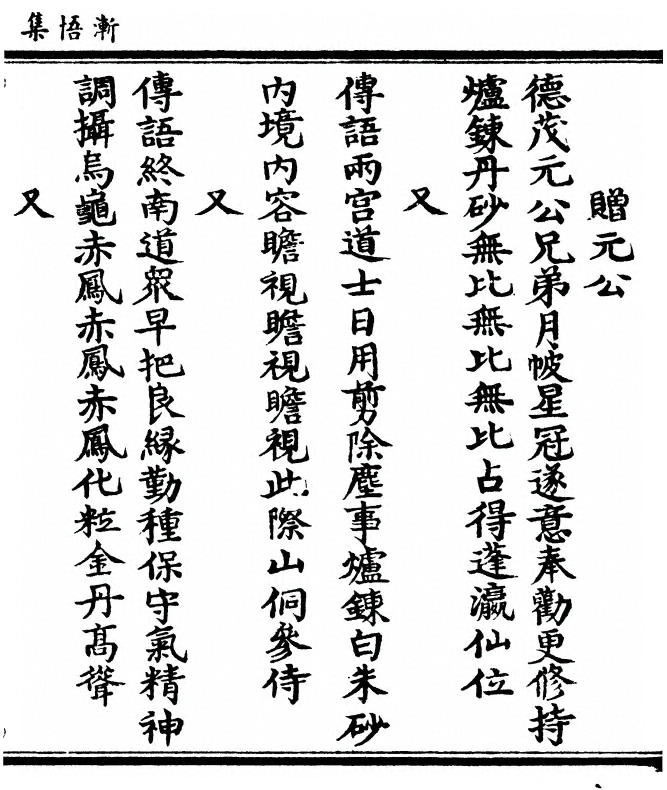 漸悟集
贈元公
德茂元公兄弟月帔星冠遂意奉勸更修持
爐鍊丹砂無比無比無比占得蓬瀛仙位
又
傳語兩宫道士日用剪除塵事爐鍊白朱砂
内境内容瞻視瞻視瞻視此際山侗參侍
又
傳語終南道衆早把良緣勤種保守氣精神
調攝烏龜赤鳳赤鳳赤鳳化粒金丹髙聳
又